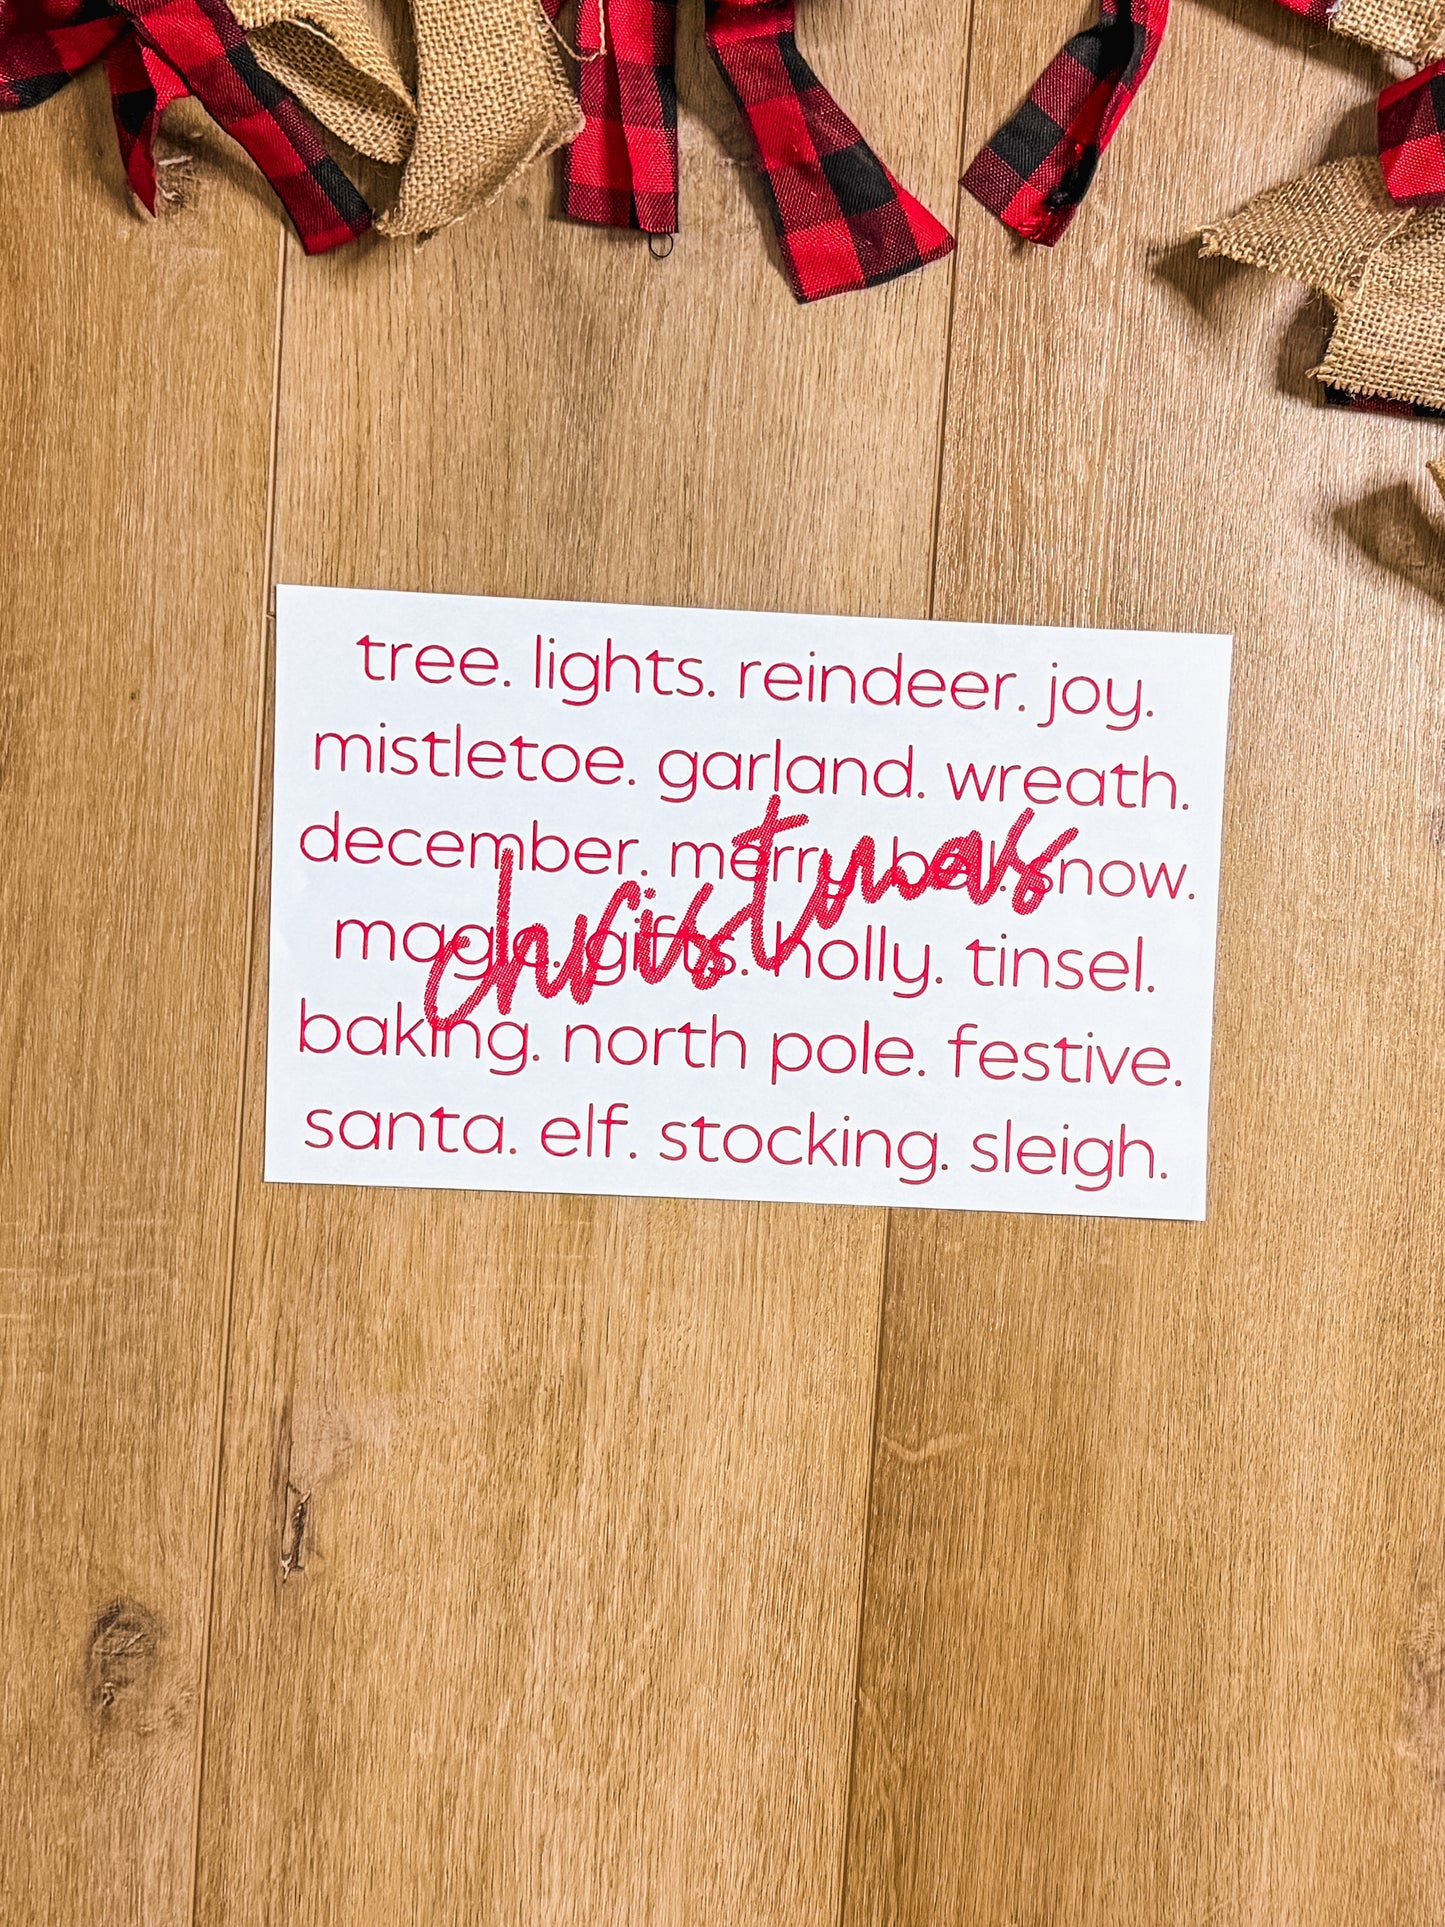 tree. lights. reindeer. joy.
mistletoe. garland. wreath.
december. merry. bell. snow.
magic. gifts. holly. tinsel.
baking. north pole. festive.
santa. elf. stocking. sleigh.
christmas